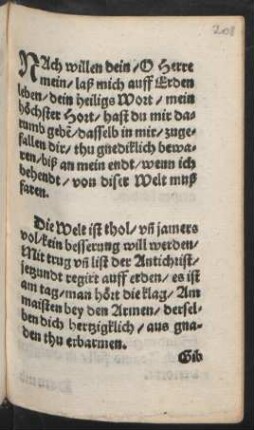 208
NAch willen dein/O Herre
mein/laß mich auff Erden
leben/dein heiligs Wort/mein
höchster Hort/hast du mir da-
rumb gebē/dasselb in mir/zuge-
fallen dir/thu gnediklich bewa-
ren/biß an mein endt/wenn ich
behendt/von diser Welt muß
faren.
Die Welt ist thol/vñ jamers
vol/kein besserung will werden/
Mit trug vñ list der Antichrist/
jetzundt regirt auff erden/es ist
am tag/man hört die klag/Am
maisten bey den Armen/dersel-
ben dich hertzigklich/aus gna-
den thu erbarmen.
Gib